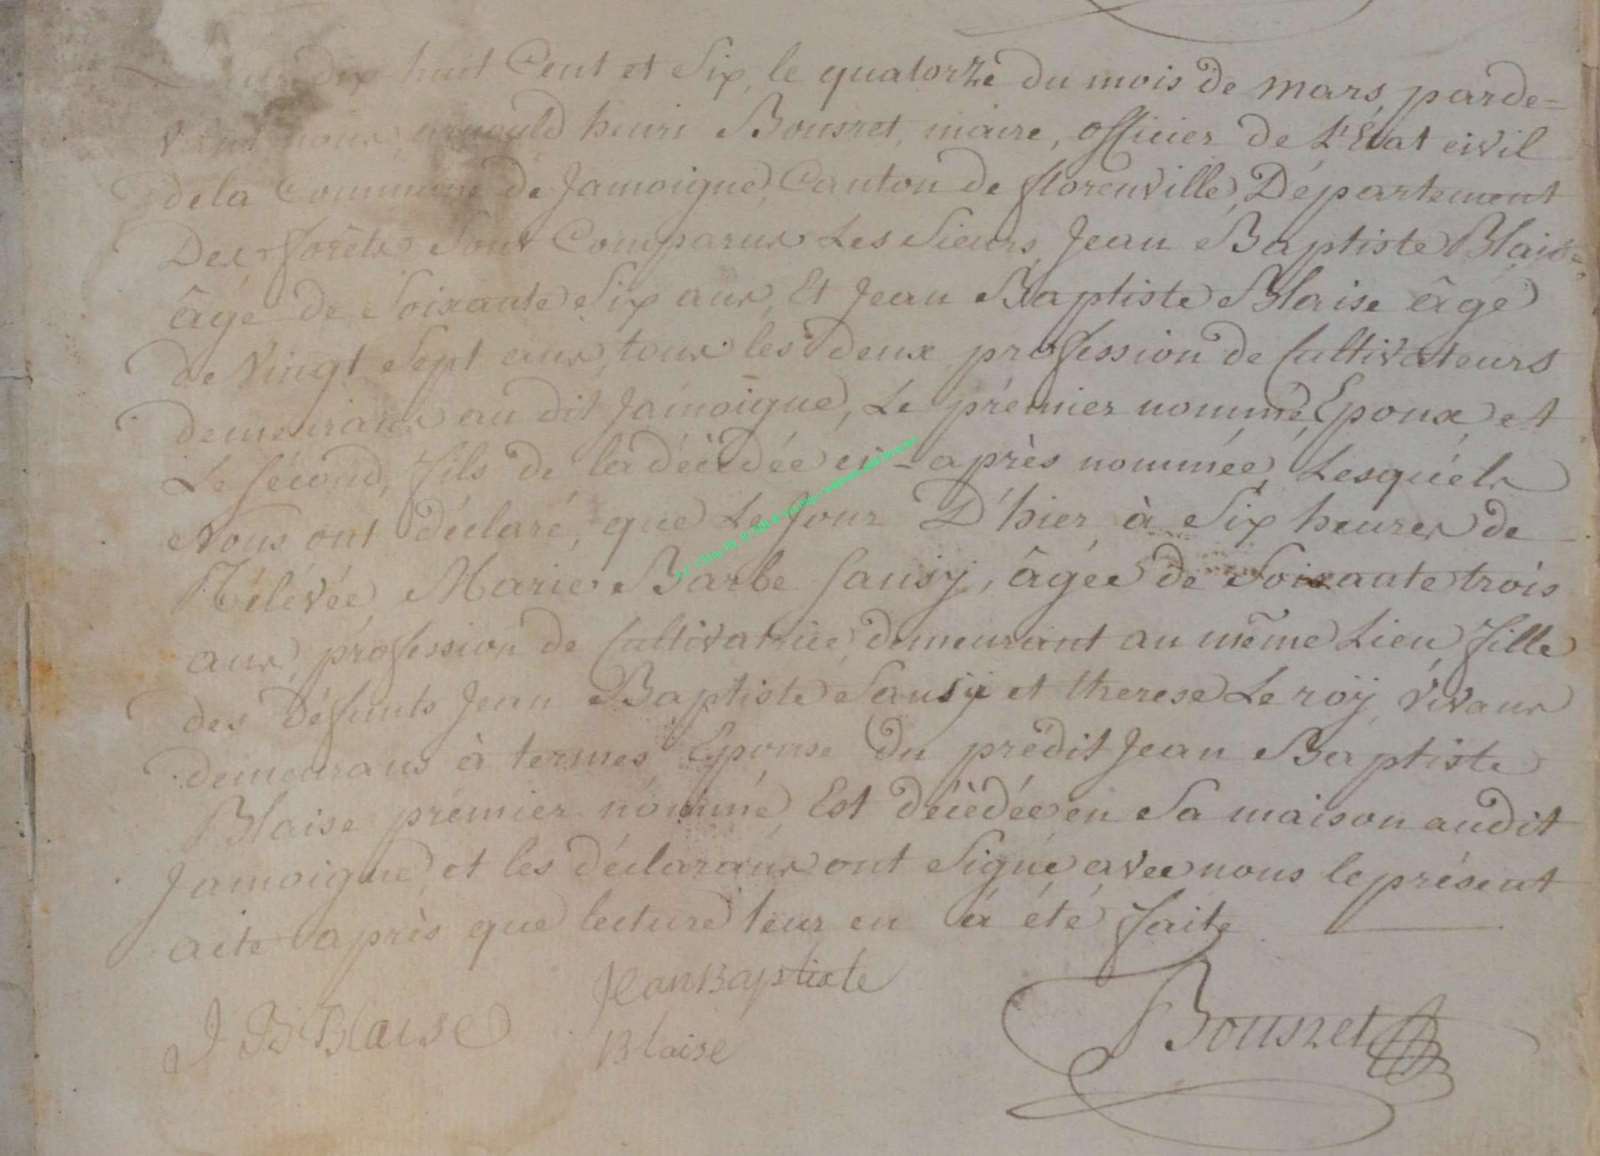 dix huit Cent et Six, le quatorze du mois de mars, parde=
vant nous, arnould henri Bousret, maire, officier de L'Etat civil
de la Commune de Jamoigne, Canton de florenville, Département
Des forêts Sont Comparus Les Sieurs Jean Baptiste Blaise
âgé de Soixante Six ans, Et Jean Baptiste Blaise âgé
de Vingt Sept ans, tous les deux profession de Cultivateurs
demeurans au dit Jamoigne, Le prémier nommé Epoux et
Le sécond, fils de la décédée ci-après nommée, Lesquéls
Nous ont déclaré, que Le jour D'hier à Six heures de
Rélévée Marie Barbe Sausy, âgée de Soixante trois
ans, profession de Cultivatrice, demeurant au même Lieu, fille
des Défunts Jean Baptiste Sausy et therese Le roÿ, Vivans
demeurans à termes, Epouse du prédit Jean Baptiste
Blaise prémier nommé Est décédée en Sa maison audit
Jamoigne, et les déclarans ont Signé avec nous le présent
acte après que lecture leur en a été faite
Jean Baptiste
J B Blaise
Blaise
Bousret